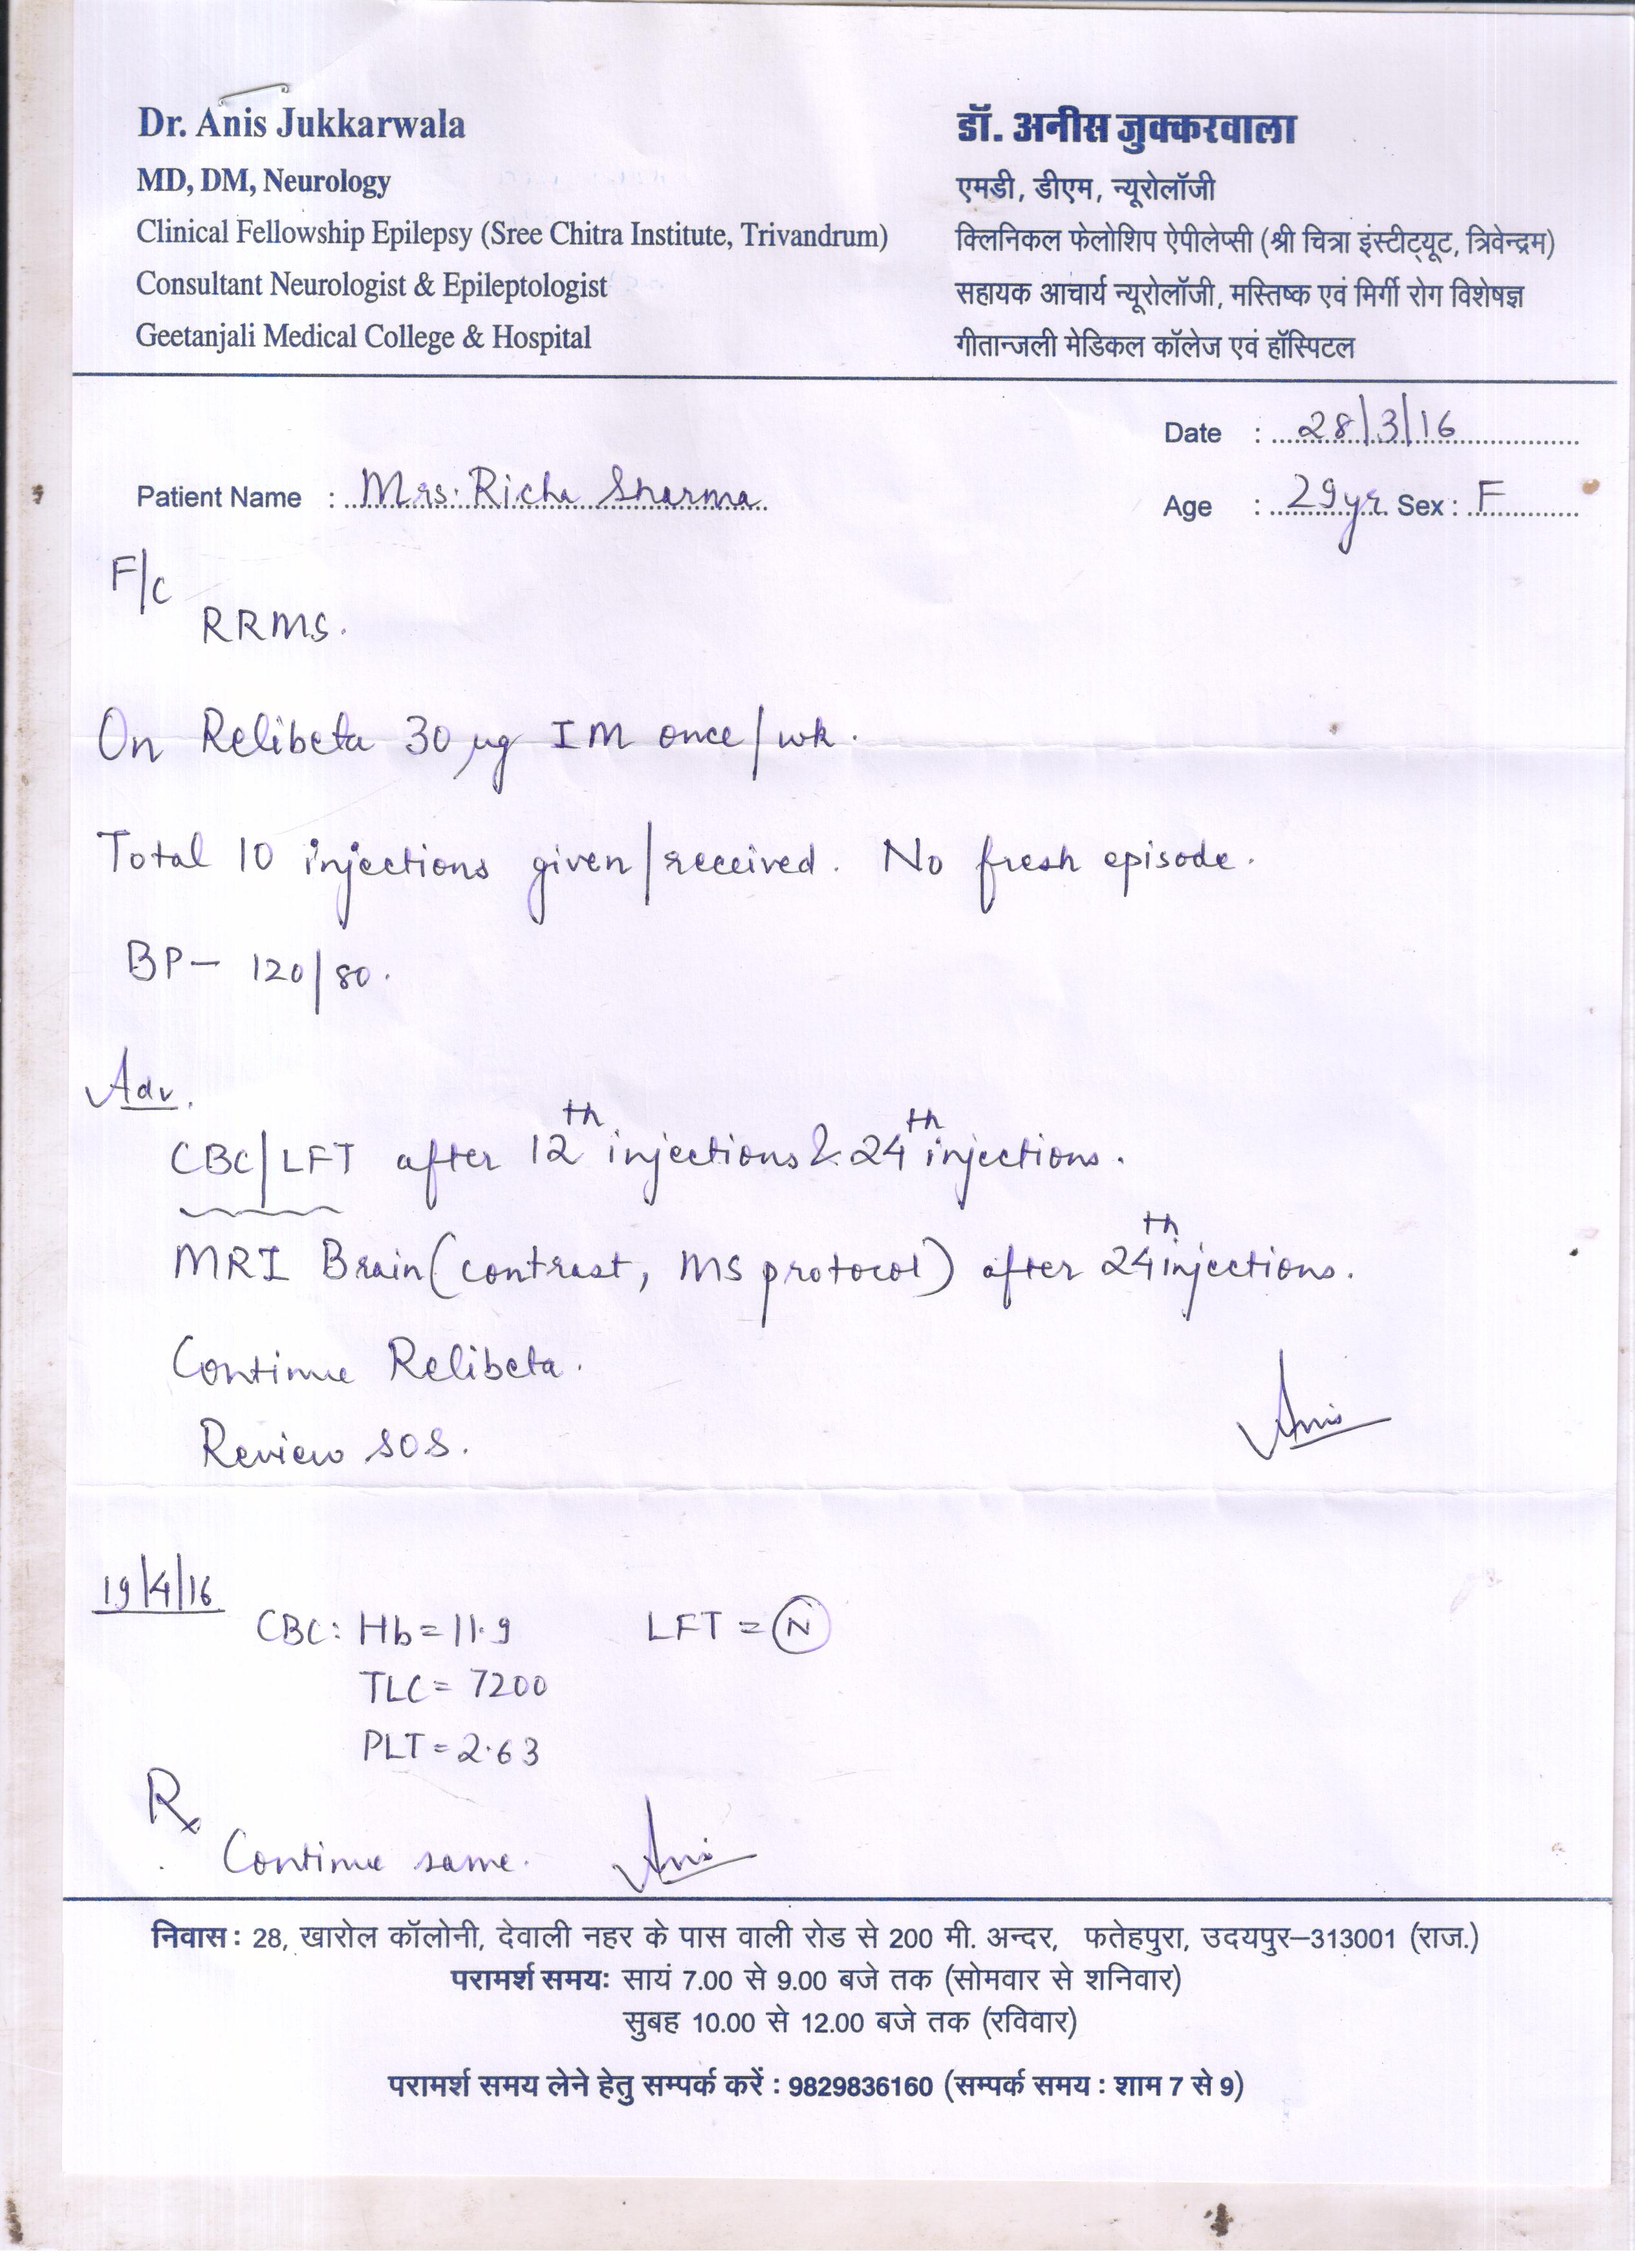 Dr. Anis Jukkarwala
MD, DM, Neurology
Clinical Fellowship Epilepsy (Sree Chitra Institute, Trivandrum)
Consultant Neurologist & Epileptologist
Geetanjali Medical College & Hospital
डॉ. अनीस जुक्करवाला
एमडी, डीएम, न्यूरोलॉजी
क्लिनिकल फेलोशिप ऐपीलेप्सी (श्री चित्रा इंस्टीट्यूट, त्रिवेन्द्रम)
सहायक आचार्य न्यूरोलॉजी, मस्तिष्क एवं मिर्गी रोग विशेषज्ञ
गीतान्जली मेडिकल कॉलेज एवं हॉस्पिटल
Date : 28/3/16
Patient Name : Mrs. Richa Sharma
Age : 29yr Sex : F
F/C
RRMS.
On Relibeta 30 µg IM once/wk.
Total 10 injections given/received. No fresh episode.
BP- 120/80.
Adv.
CBC/LFT after 12th injections & 24th injections.
MRI Brain (contrast, MS protocol) after 24th injections.
Continue Relibeta.
Review SOS.
Anis
19/4/16
CBC: Hb = 11.9 LFT = N
TLC = 7200
PLT = 2.63
Rx
Continue same. Anis
निवास : 28, खारोल कॉलोनी, देवाली नहर के पास वाली रोड से 200 मी. अन्दर, फतेहपुरा, उदयपुर–313001 (राज.)
परामर्श समयः सायं 7.00 से 9.00 बजे तक (सोमवार से शनिवार)
सुबह 10.00 से 12.00 बजे तक (रविवार)
परामर्श समय लेने हेतु सम्पर्क करें : 9829836160 (सम्पर्क समय : शाम 7 से 9)